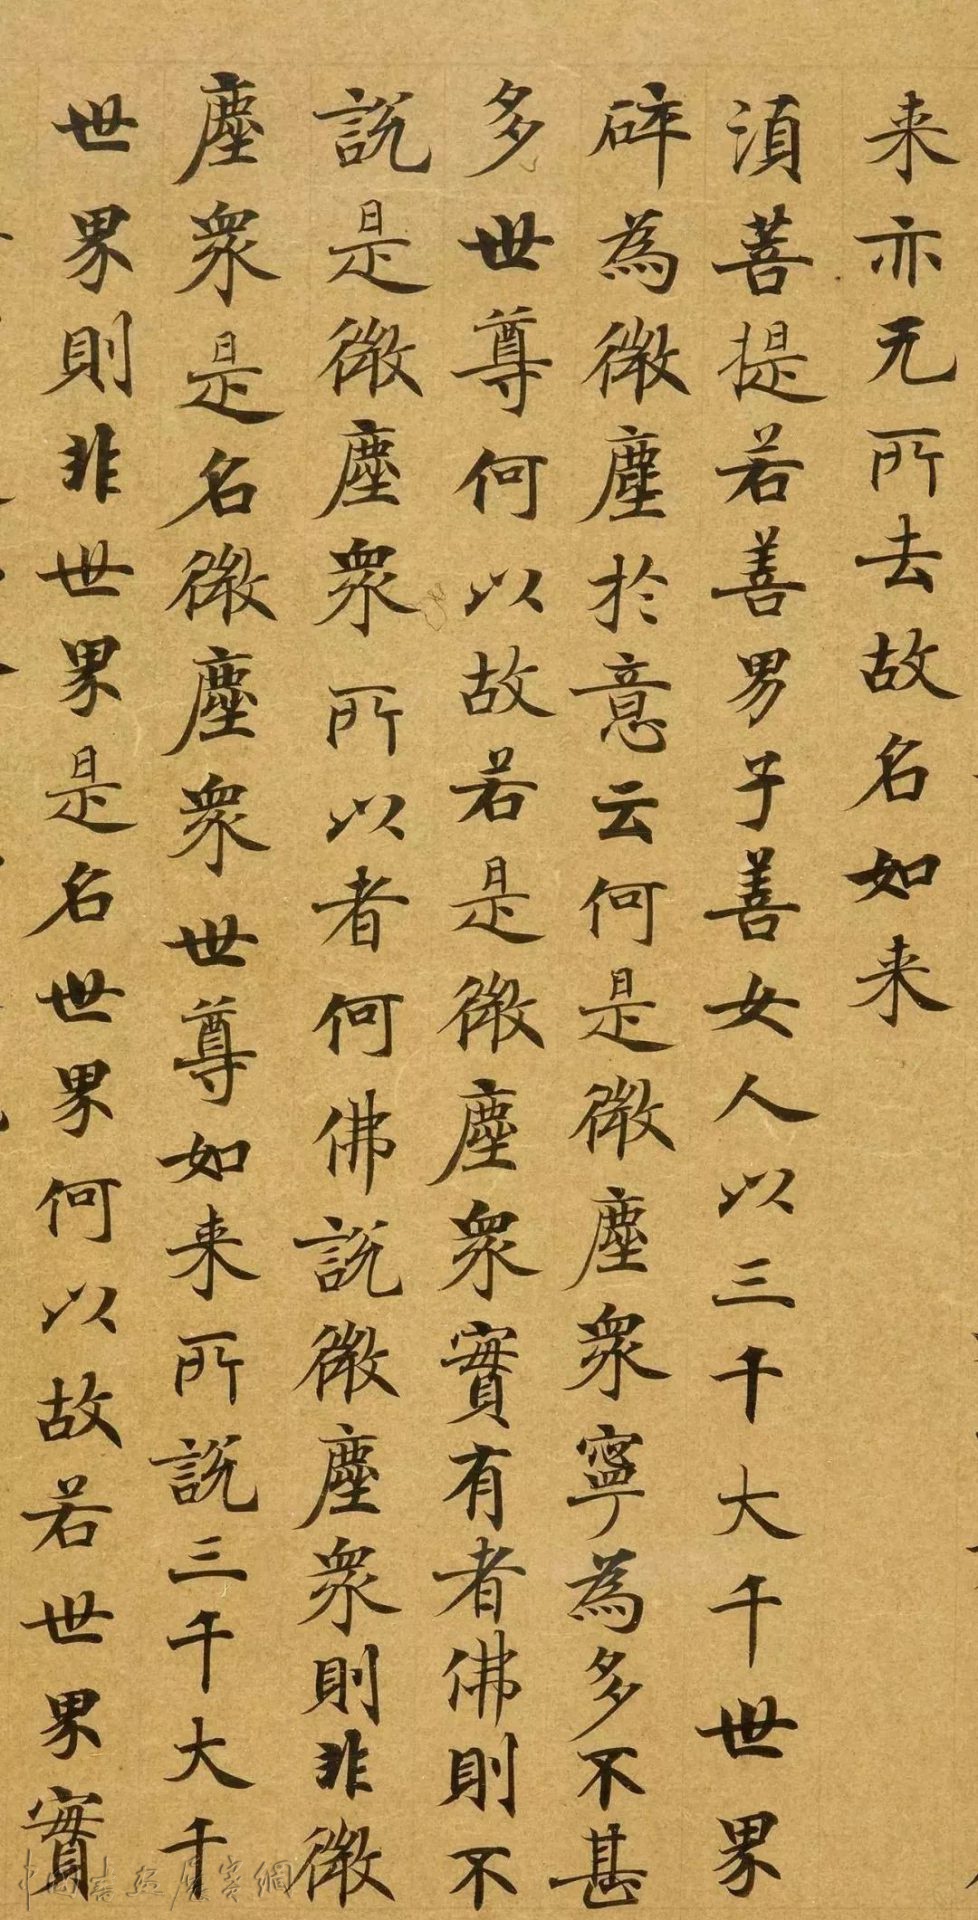 来亦无所去故名如来
須菩提若善男子善女人以三千大千世界
碎為微塵於意云何是微塵衆寧為多不甚
多世尊何以故若是微塵衆實有者佛則不
說是微塵衆所以者何佛說微塵衆則非微
塵衆是名微塵衆世尊如来所說三千大千
世界則非世界是名世界何以故若世界實
中國書画廣賽網